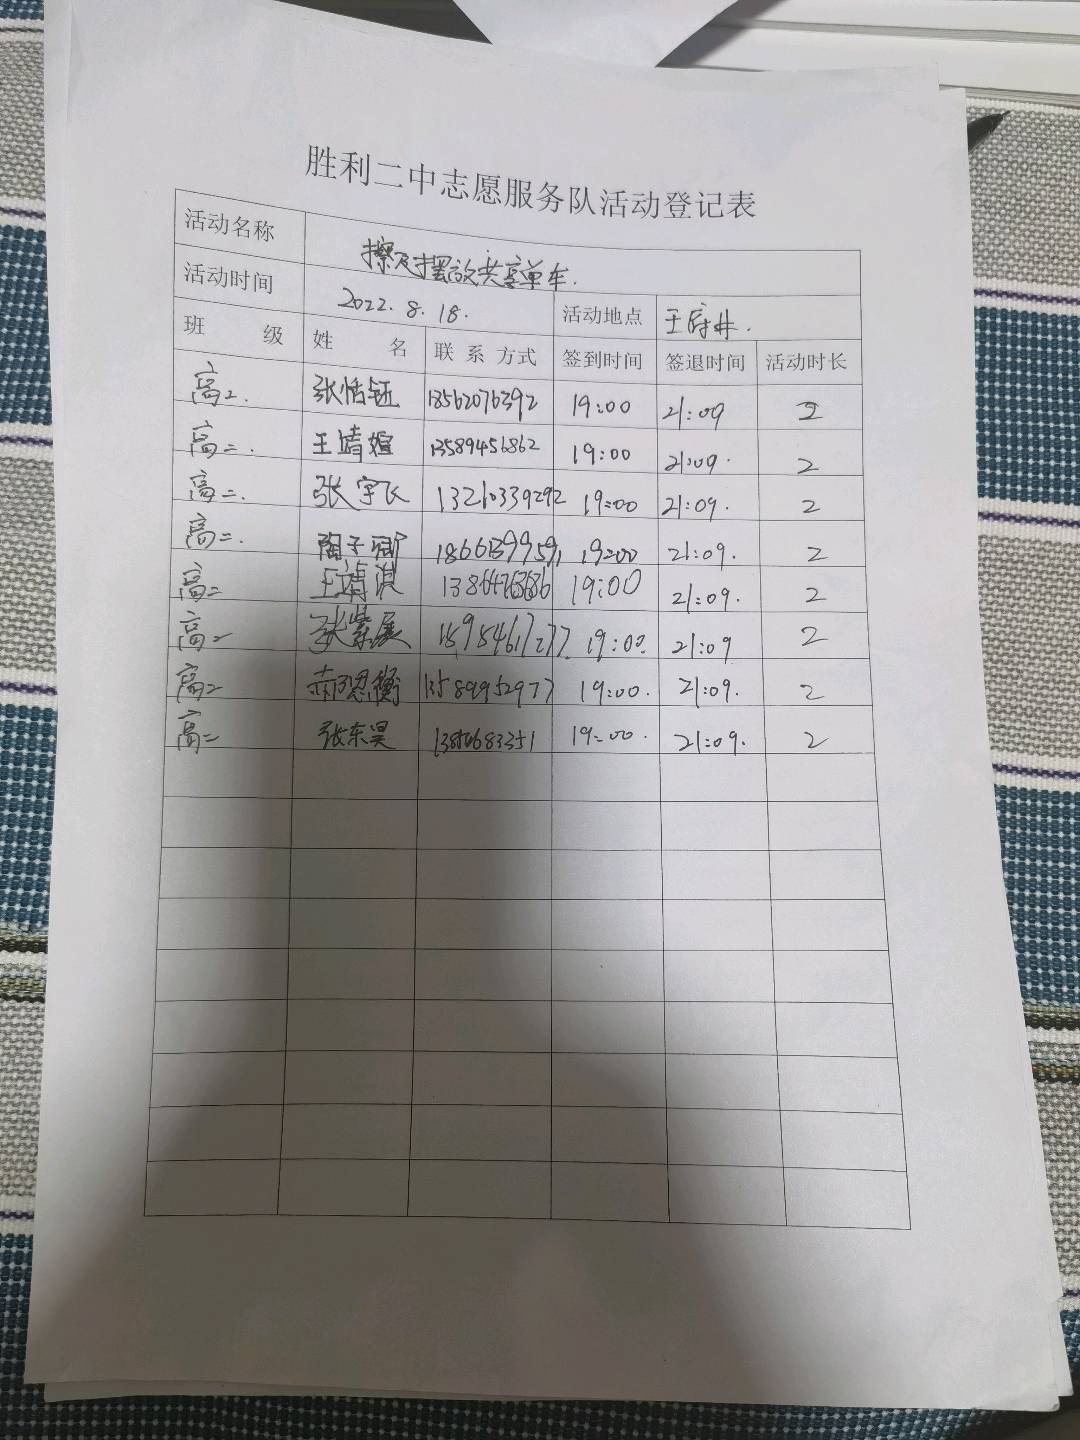 胜利二中志愿服务队活动登记表
活动名称 擦及摆放共享单车.
活动时间 2022.8.18. 活动地点 王府井.
班 级 姓 名 联 系 方式 签到时间 签退时间 活动时长
高二. 张恬钰 13562076392 19:00 21:09 2
高二. 王靖煊 13589456862 19:00 21:09. 2
高二. 张宇飞 13210339292 19:00 21:09. 2
高二. 陶子卿 18661399591 19:00 21:09. 2
高二 王靖淇 19:00 21:09. 2
高二 张紫展 15954617277. 19:00. 21:09 2
高二 郝恩衡 13589952977 19:00. 21:09. 2
高二 张东昊 19:00. 21:09. 2